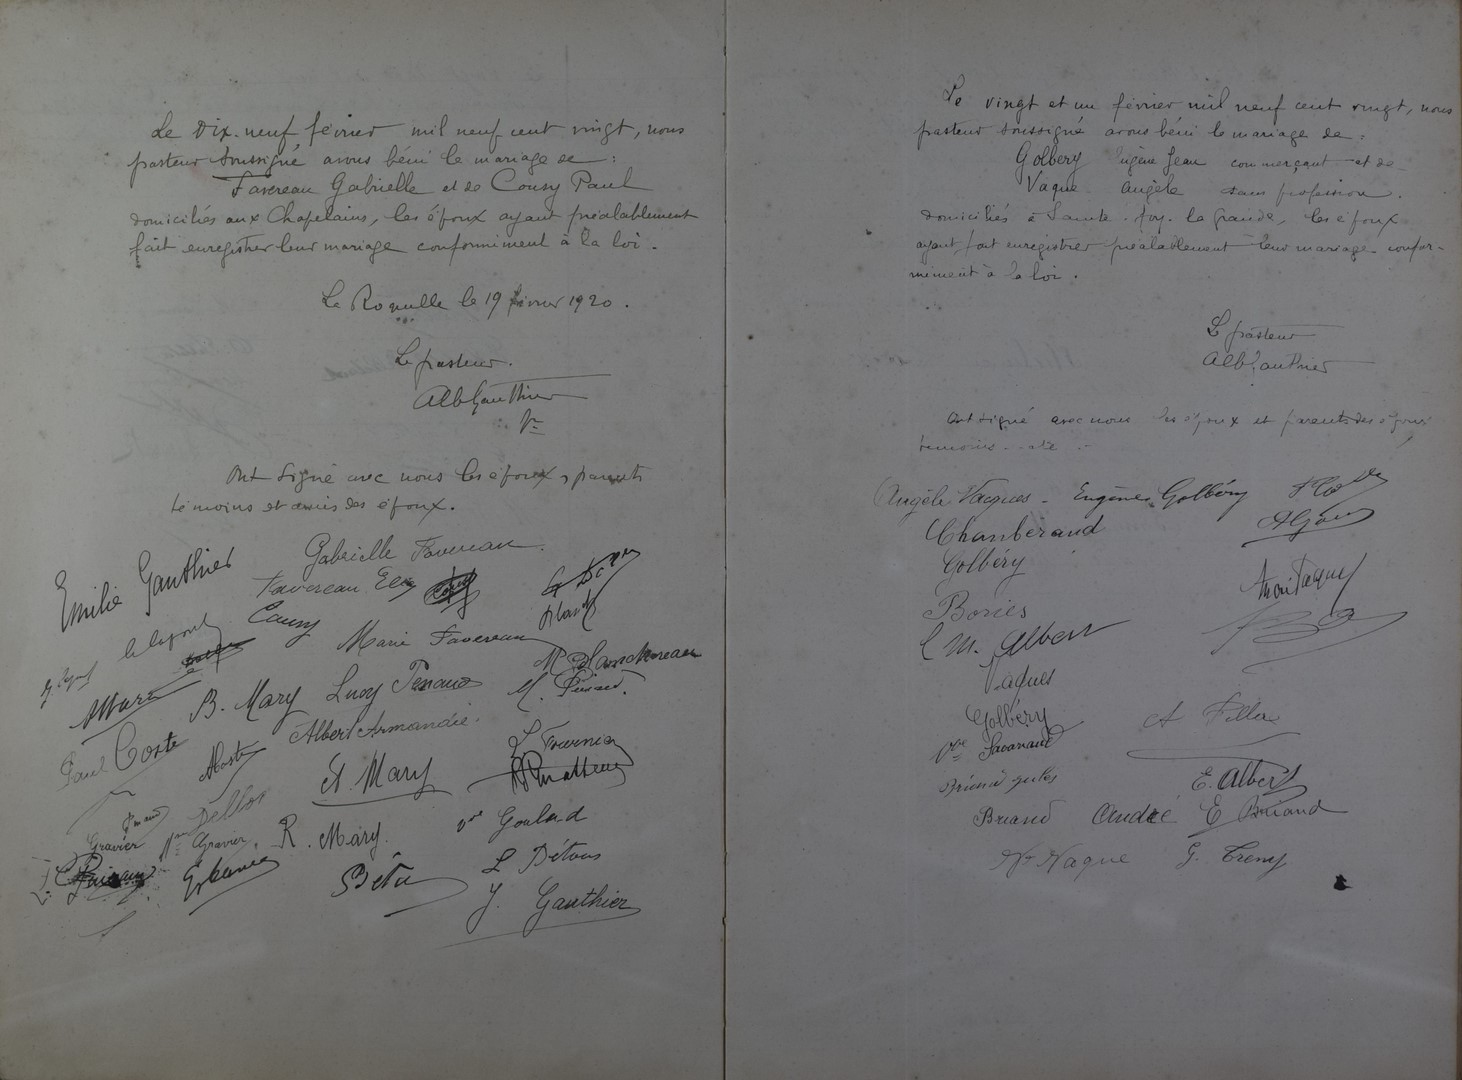 Le Dix-neuf février mil neuf cent vingt, nous
pasteur soussigné avons béni le mariage de :
Favereau Gabrielle et de Cousy Paul
domiciliés aux Chapelains, les époux ayant préalablement
fait enregistrer leur mariage conformément à la loi.
Le Roquille le 19 février 1920.
Le pasteur.
Alb Gauthier
Ont signé avec nous les époux, parents
témoins et amis des époux.
Emilie Gauthier
Gabrielle Favereau
Favereau
Cousy
Marie Favereau
M Blanchereau
B. Mary
Albert Armandie.
Paul Coste
L Fournier
et. Mary
Dellos
Gravier
Gravier.
R. Mary.
Goulard
L Détous
Bétu
J. Gauthier
Le vingt et un février mil neuf cent vingt, nous
pasteur soussigné avons béni le mariage de :
Golbery Eugène Jean commerçant et de
Vaque Angèle sans profession.
domiciliés à Sainte-Foy-la Grande, les époux
ayant fait enregistrer préalablement leur mariage confor-
mément à la loi.
Le pasteur
Alb Gauthier
Ont signé avec nous les époux et parents des époux
témoins
Angèle Vaques - Eugène Golbéry
Chanberaud
Golbéry
Montaque
Bories
M. Albert
Vaques
Golbéry
A Filler
Vve Savariaud
Briand Jules
E. Albert
Briand André E Briand
Vaque G. Treny